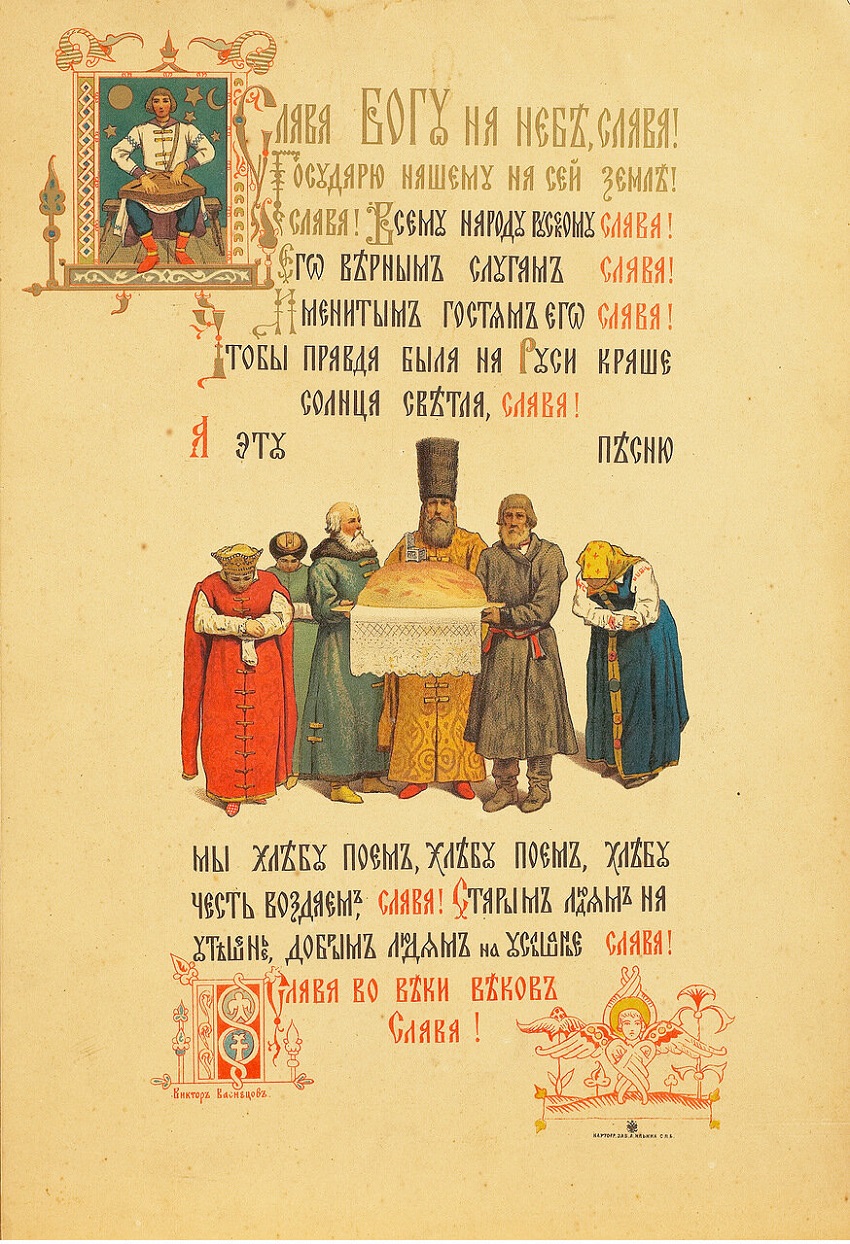 Слава Богꙋ на небѣ, слава!
Государю нашемꙋ на сей землѣ!
слава! Всемꙋ народꙋ рускомꙋ слава!
Егѡ вѣрнымъ слугамъ слава!
Именитымъ гостямъ егѡ слава!
Чтобы правда была на Руси краше
солнца свѣтла, слава!
А этꙋ пѣсню
мы хлѣбꙋ поемъ, хлѣбꙋ поемъ, хлѣбꙋ
честь воздаемъ, слава! Старымъ людямъ на
ꙋтѣшенье, добрымъ людямъ на ꙋслышанье слава!
Слава во вѣки вѣковъ
Слава!
Викторъ Васнецовъ.
КАРТОГР. ЗАВ. А. ИЛЬИНА С.П.Б.